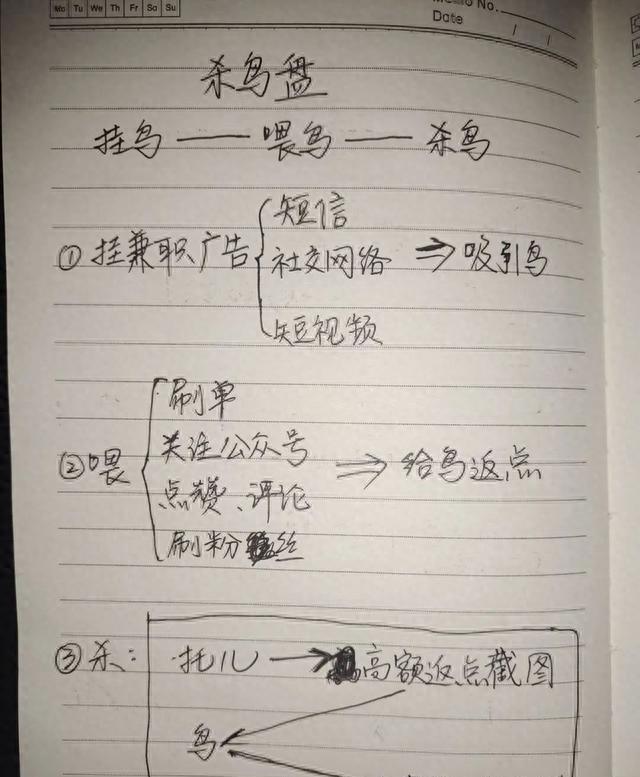 Mo Tu We Th Fr Sa Su
Memo No.
Date / /
杀鸟盘
挂鸟 — 喂鸟 — 杀鸟
① 挂兼职广告 { 短信
社交网络 ⇒ 吸引鸟
短视频
② 喂 { 刷单
关注公众号 ⇒ 给鸟返点
点赞、评论
刷粉丝
③ 杀: 托儿 → 高额返点截图
鸟